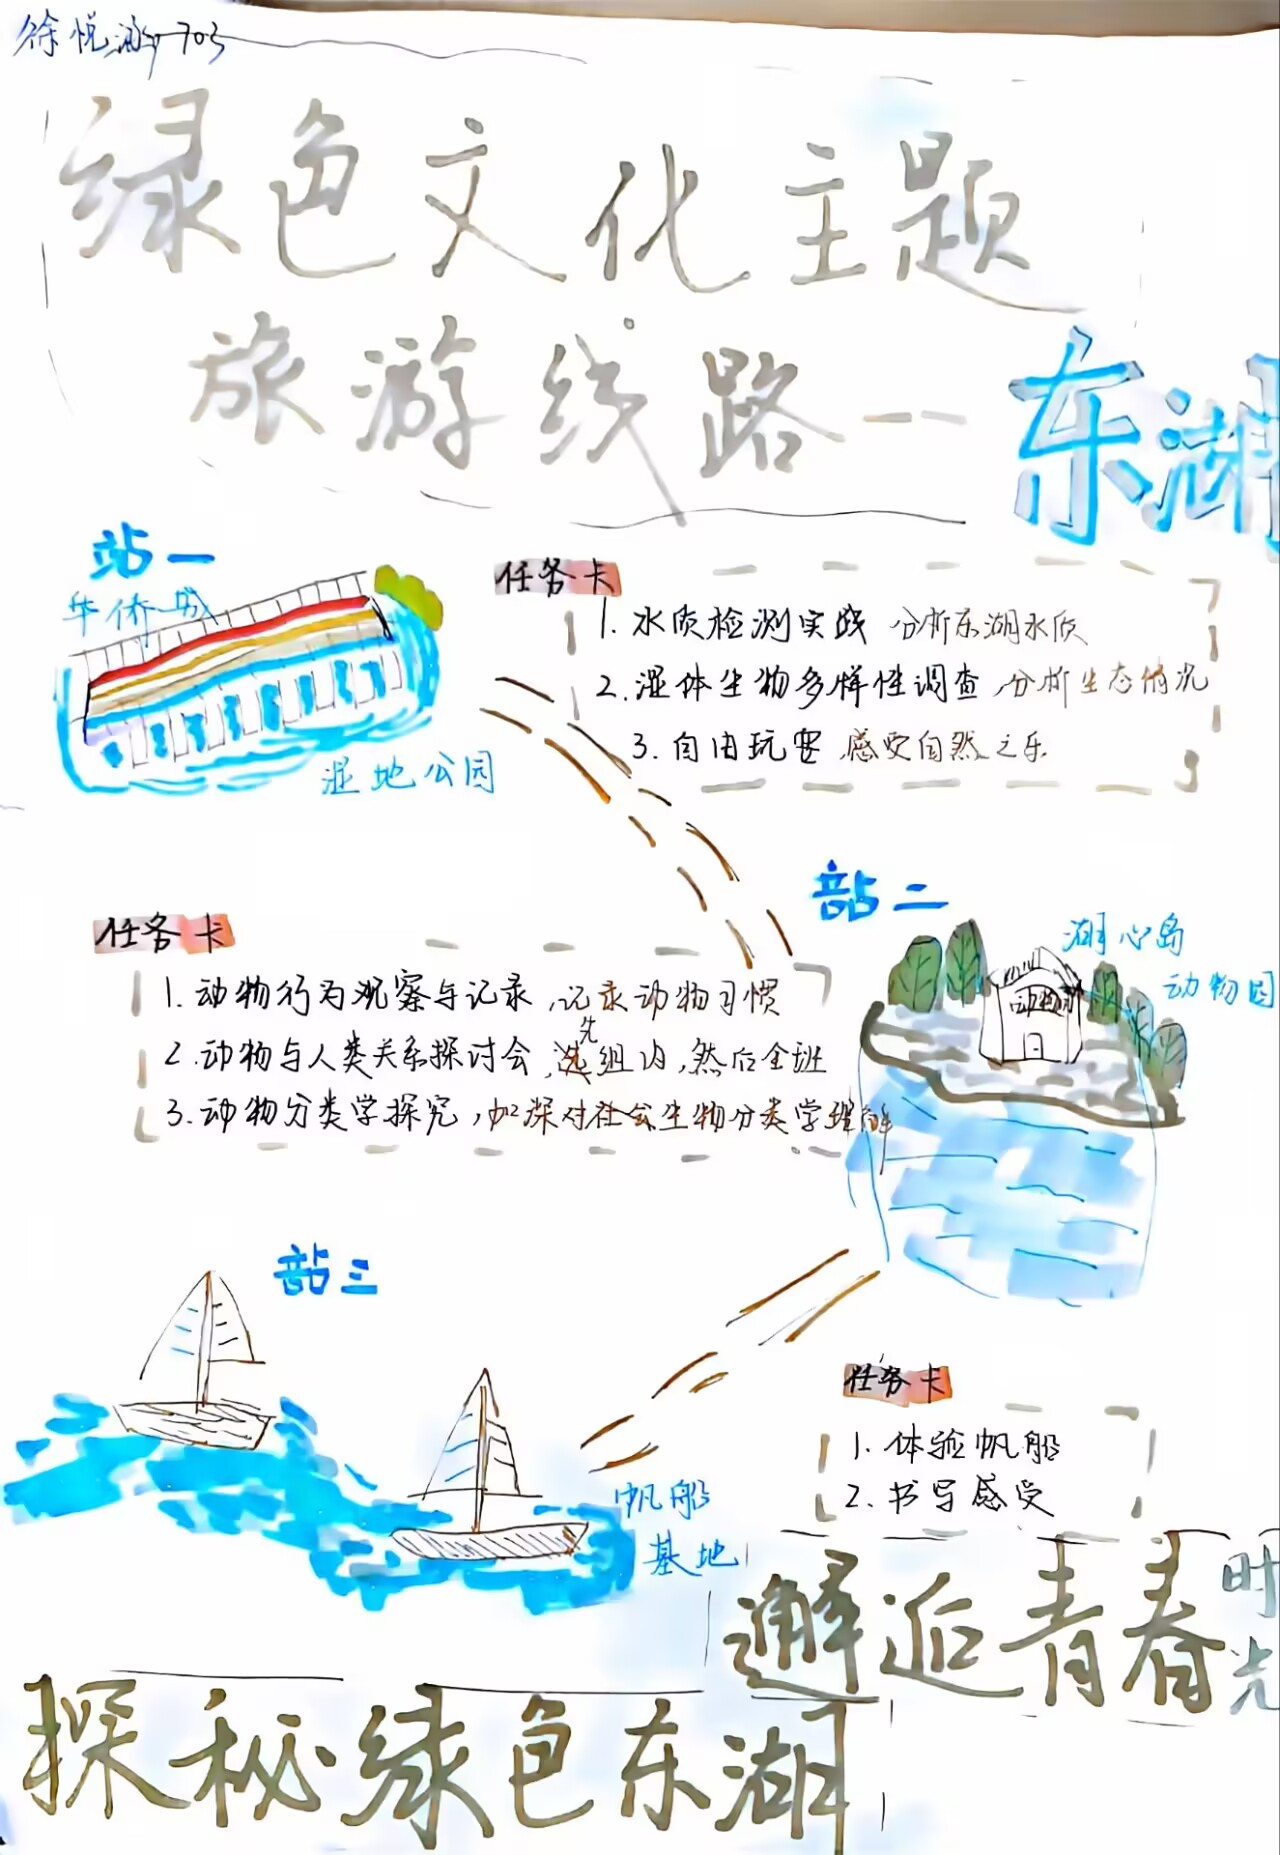 徐悦 703
绿色文化主题
旅游线路——东湖
站一
华侨城
湿地公园
任务卡
1. 水质检测实践 分析东湖水质
2. 湿体生物多样性调查,分析生态情况
3. 自由玩耍,感受自然之乐
站二
湖心岛
动物园
动物园
任务卡
1. 动物行为观察与记录,记录动物习惯
2. 动物与人类关系探讨会,先组内,然后全班
3. 动物分类学探究,加深对社会生物分类学理解
站三
帆船
基地
任务卡
1. 体验帆船
2. 书写感受
邂逅青春时光
探秘绿色东湖